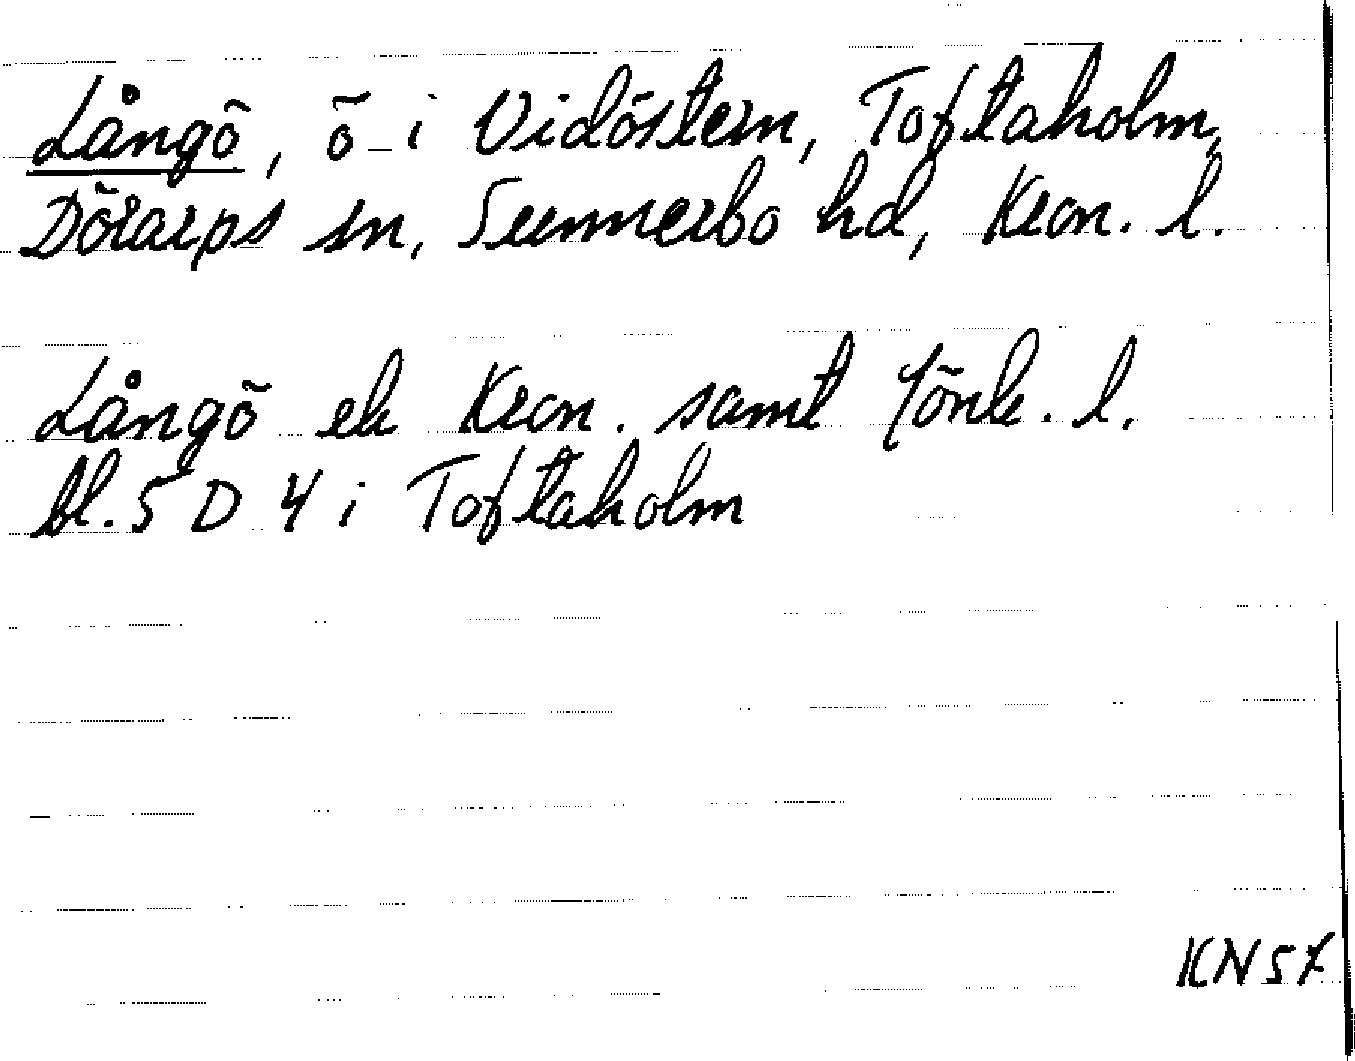 Långö, ö i Vidöstern, Toftaholm,
Dörarps sn, Sunnerbo hd, Kron. l.
Långö ek Kron. samt Jönk. l.
bl. 5 D 4 i Toftaholm
KN 57